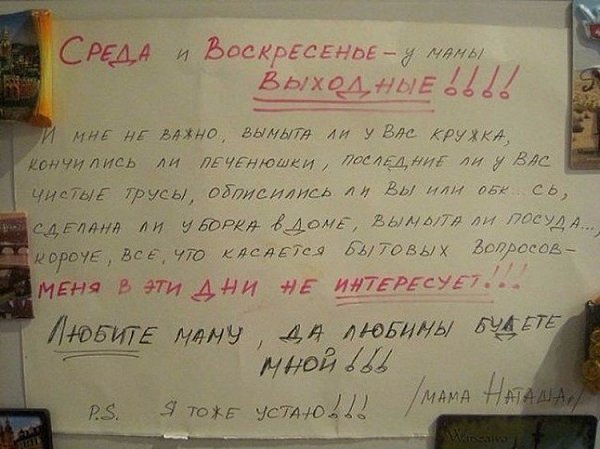 Среда и Воскресенье – у мамы
выходные!!!!
И мне не важно, вымыта ли у Вас кружка,
кончились ли печенюшки, последние ли у Вас
чистые трусы, обписились ли Вы или обк...сь,
сделана ли уборка в доме, вымыта ли посуда...,
короче, все, что касается бытовых вопросов –
меня в эти дни не интересует!!!
Любите маму, да любимы будете
мной!!!
/мама Наташа/
P.S. Я тоже устаю!!!
Warszawa